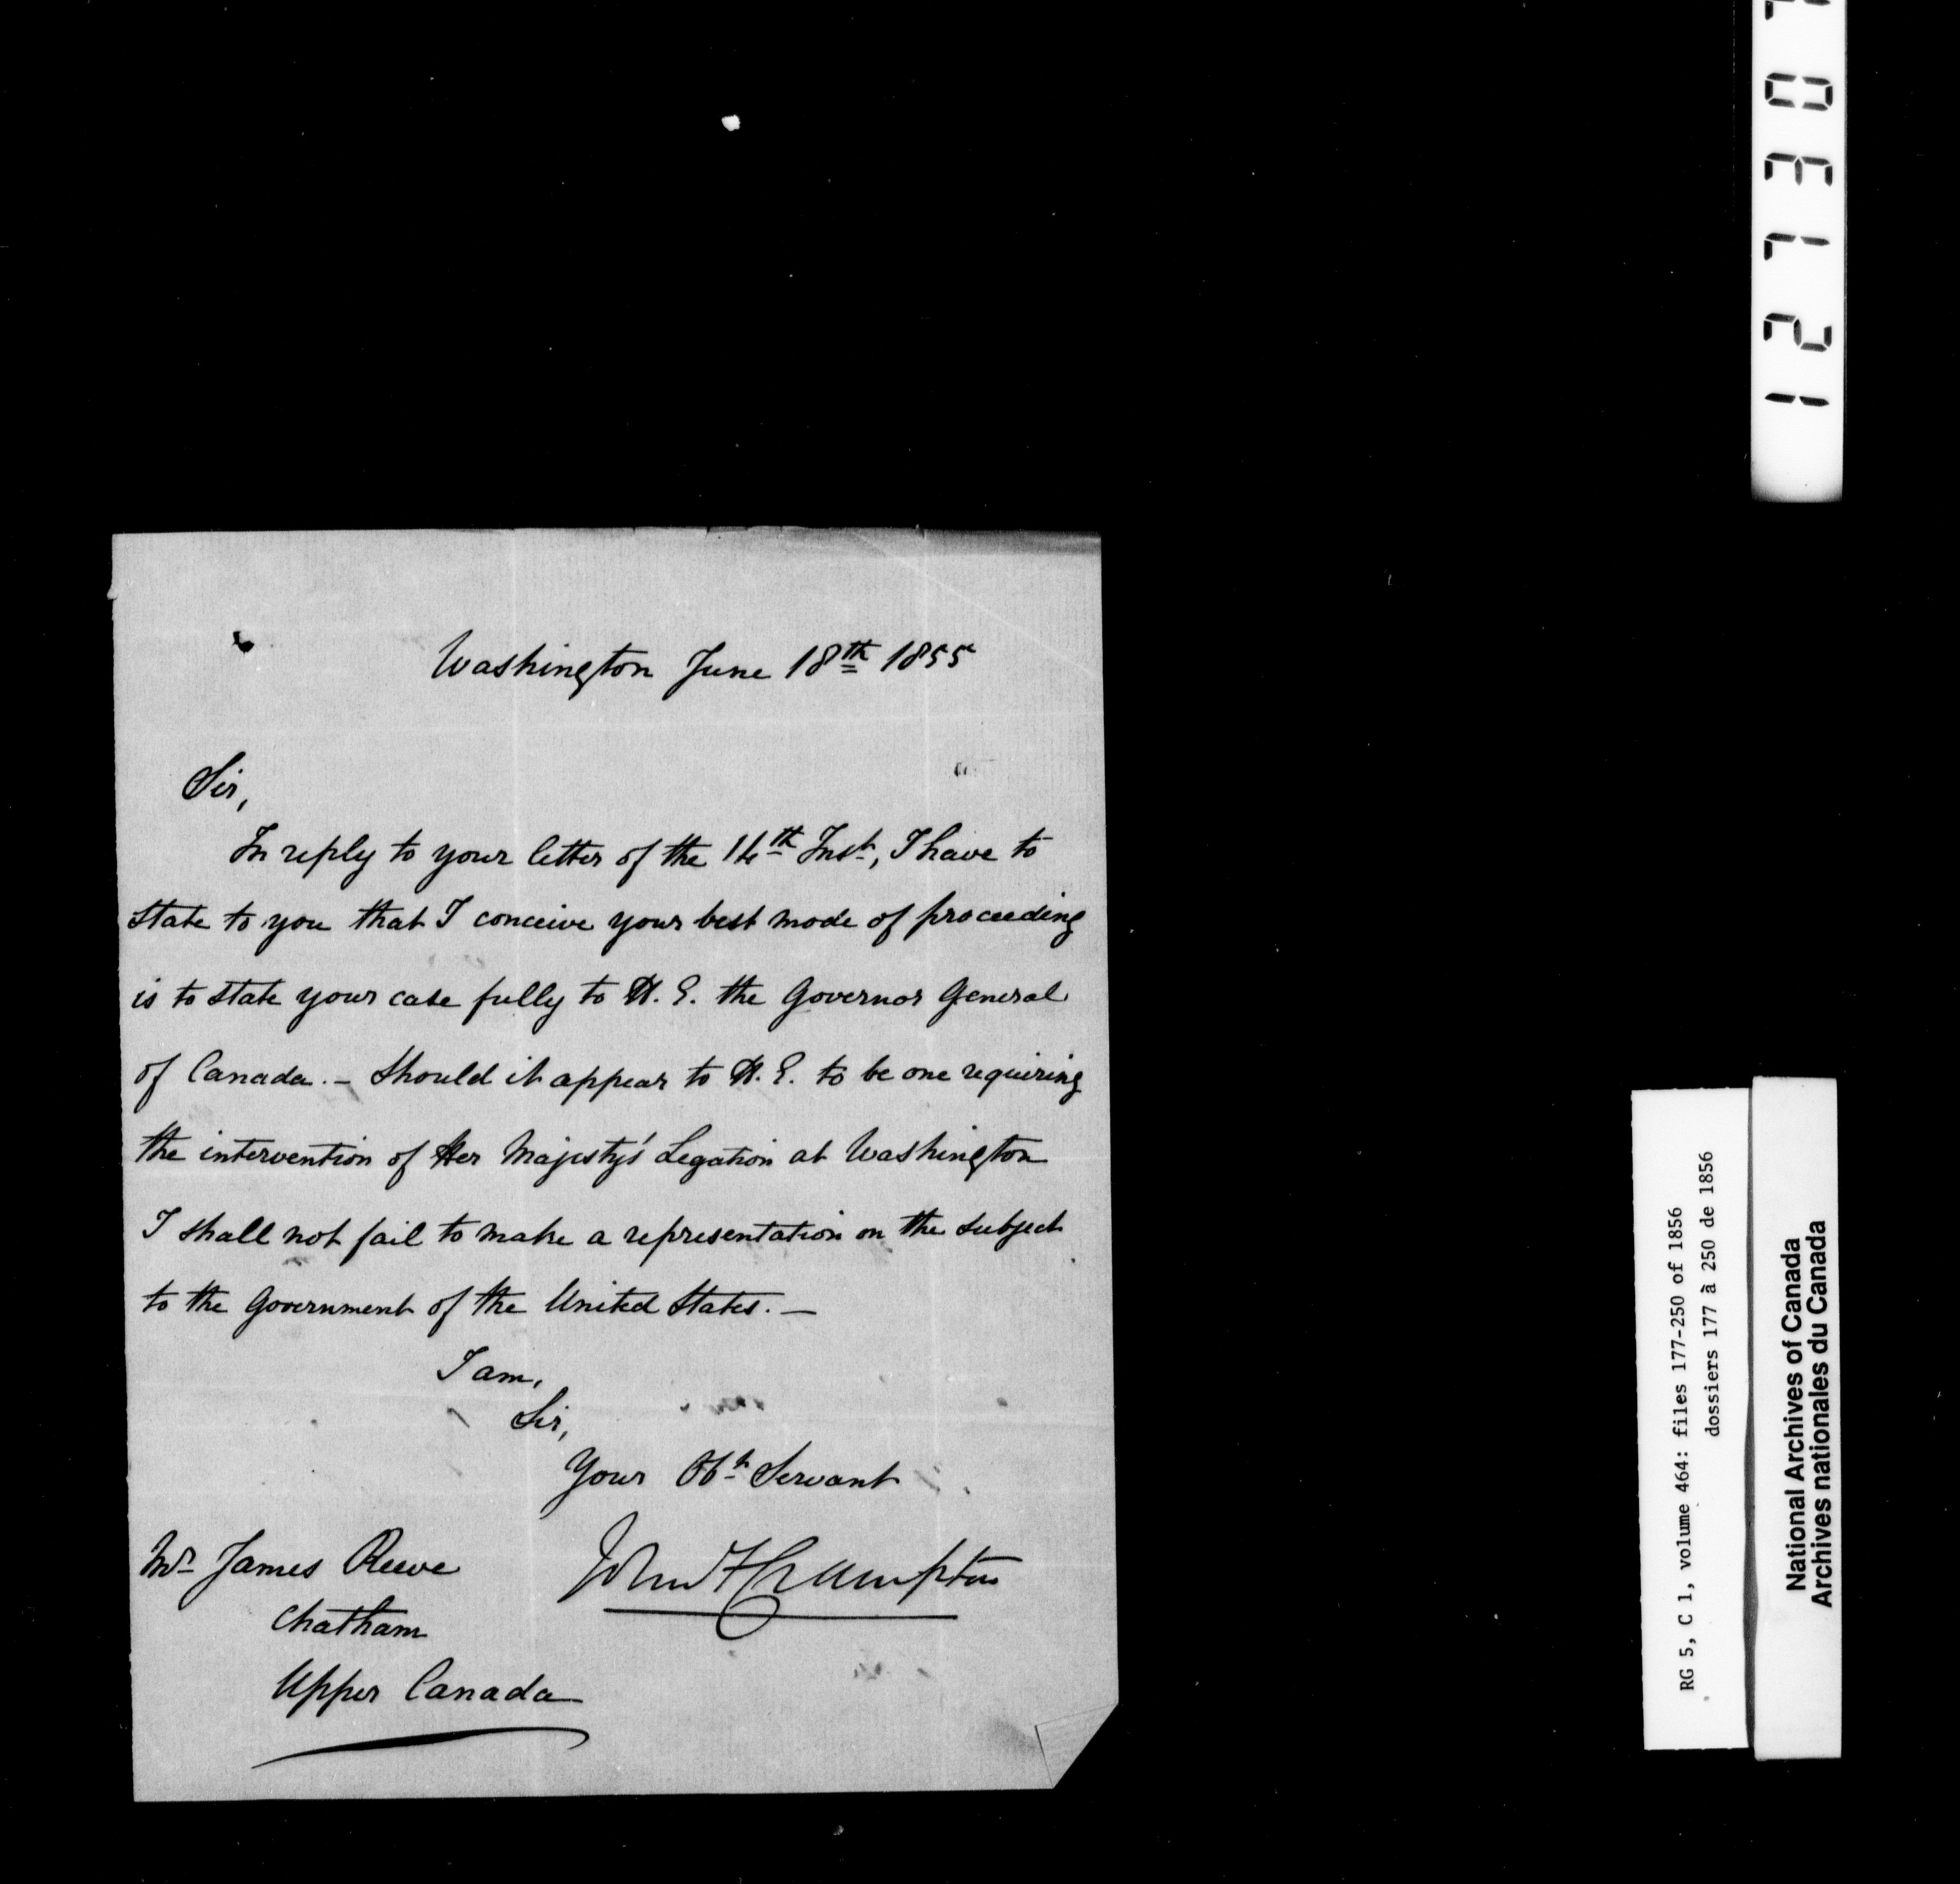 Washington June 18th 1855
Sir,
In reply to your letter of the 14th Inst, I have to
state to you that I conceive your best mode of proceeding
is to state your case fully to H. E. the Governor General
of Canada. — Should it appear to H. E. to be one requiring
the intervention of Her Majesty's Legation at Washington
I shall not fail to make a representation on the subject
to the Government of the United States. —
I am,
Sir,
Your Obt Servant
John F Crampton
Mr James Reeve
Chatham
Upper Canada
RG 5, C 1, volume 464: files 177-250 of 1856
dossiers 177 à 250 de 1856
National Archives of Canada
Archives nationales du Canada